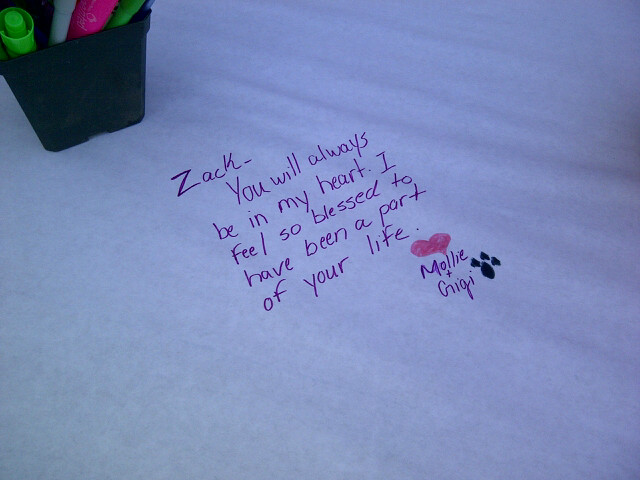 Zack-
You will always
be in my heart. I
feel so blessed to
have been a part
of your life.
Mollie
+
Gigi